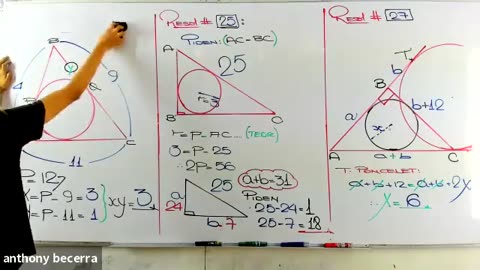 B
x
9
4
Q
C
11
P = 127
= P - 9 = 3
= P - 11 = 1
xy = 3
Resol # 25 :
PIDEN: (AC - BC)
A
25
r=3
B
C
r = P - AC .... (TEOR)
3 = P - 25
∴ 2P = 56
a
25
24
b
7
a+b=31
PIDEN
25-24=1
25-7=18
Resol # 27
T
b
B
a
b+12
x
A
a+b
C
T. PONCELET:
a+b+12=a+b+2x
∴ x = 6
anthony becerra